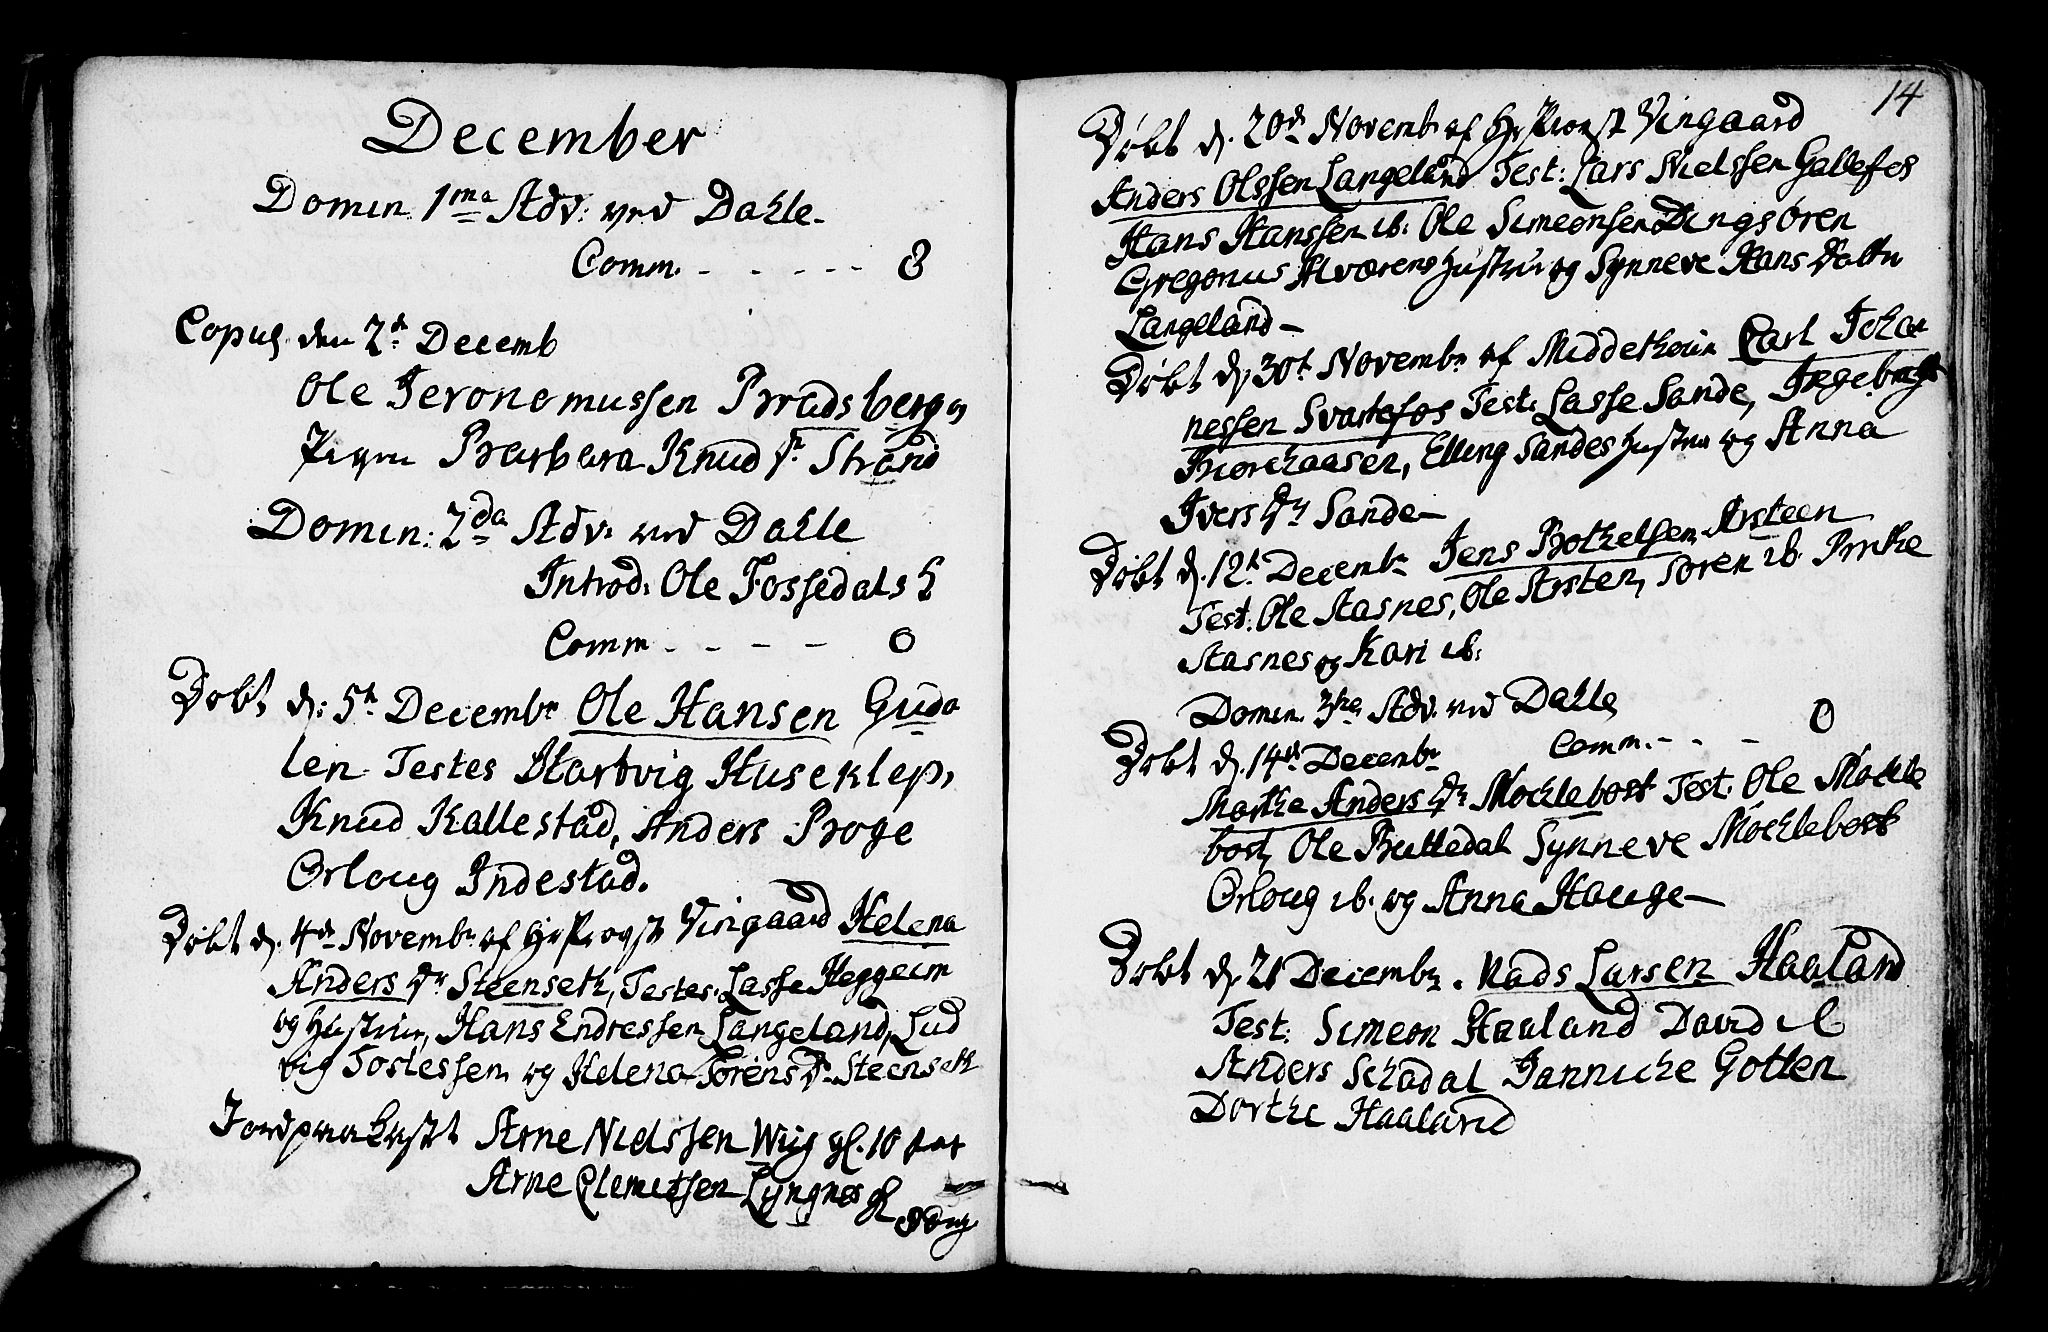 December
Domin 1ma Adv: ved Dahle.
Comm. - - - - - 8
Copul. den 2d Decemb
Ole Jeronomussen Bradsberg og
Pigen Barbara Knud Dr. Strand
Domin: 2da Adv. ved Dahle
Introd: Ole Fossedals h
Comm - - - - 0
Døbt d: 5t Decembr Ole Hansen Guda
len Testes Hartvig Huseklep,
Knud Kallestad, Anders Boge
Orloug Indestad.
Døbt d. 4de Novembr af Hr Provst Vingaard Helena
Anders Dr Steenseth, Testes. Lasse Heggeim
og Hustrue, Hans Endressen Langeland, Lud
vig Tostessen og Helena Sørens Dr Steenseth
Jordpaakastet Arne Nielssen Wiig gl. 10 aar
Arne Clemetsen Lyngnes gl
8 Dage
14
Døbt d. 20de Novemb af Hr Provst Vingaard
Anders Olssen Langeland Test: Lars Nielssen Gallefos
Hans Hanssen ib: Ole Simeonsen Dingsøren
Gregorius Alværens Hustrue og Synneve Hans Datter
Langeland -
Døbt d. 30t Novembr af Middethoun Carl Johan
nessen Svartefos Test: Lasse Sande, Ingeborg
Biørchaasen, Elling Sandes Hustru og Anna
Ivers Dr Sande -
Døbt d. 12t Decembr Jens Bothelsen Arsteen
Test: Ole Aasnes, Ole Arsten, Søren ib.
Aasnes og Kari ib:
Domin. 3tia Adv. ved Dahle
Comm. - - - 0
Døbt d. 14de Decembr
Marthe Anders Dr Mochlebost Test: Ole Mochle
bost, Ole Buttedal Synneve Mochlebost
Orloug ib. og Anna Hauge -
Døbt d. 21 Decembr. Mads Larsen Haaland
Test: Simeon Haaland David ib
Anders Schadal Janniche Gotten
Dorthe Haaland